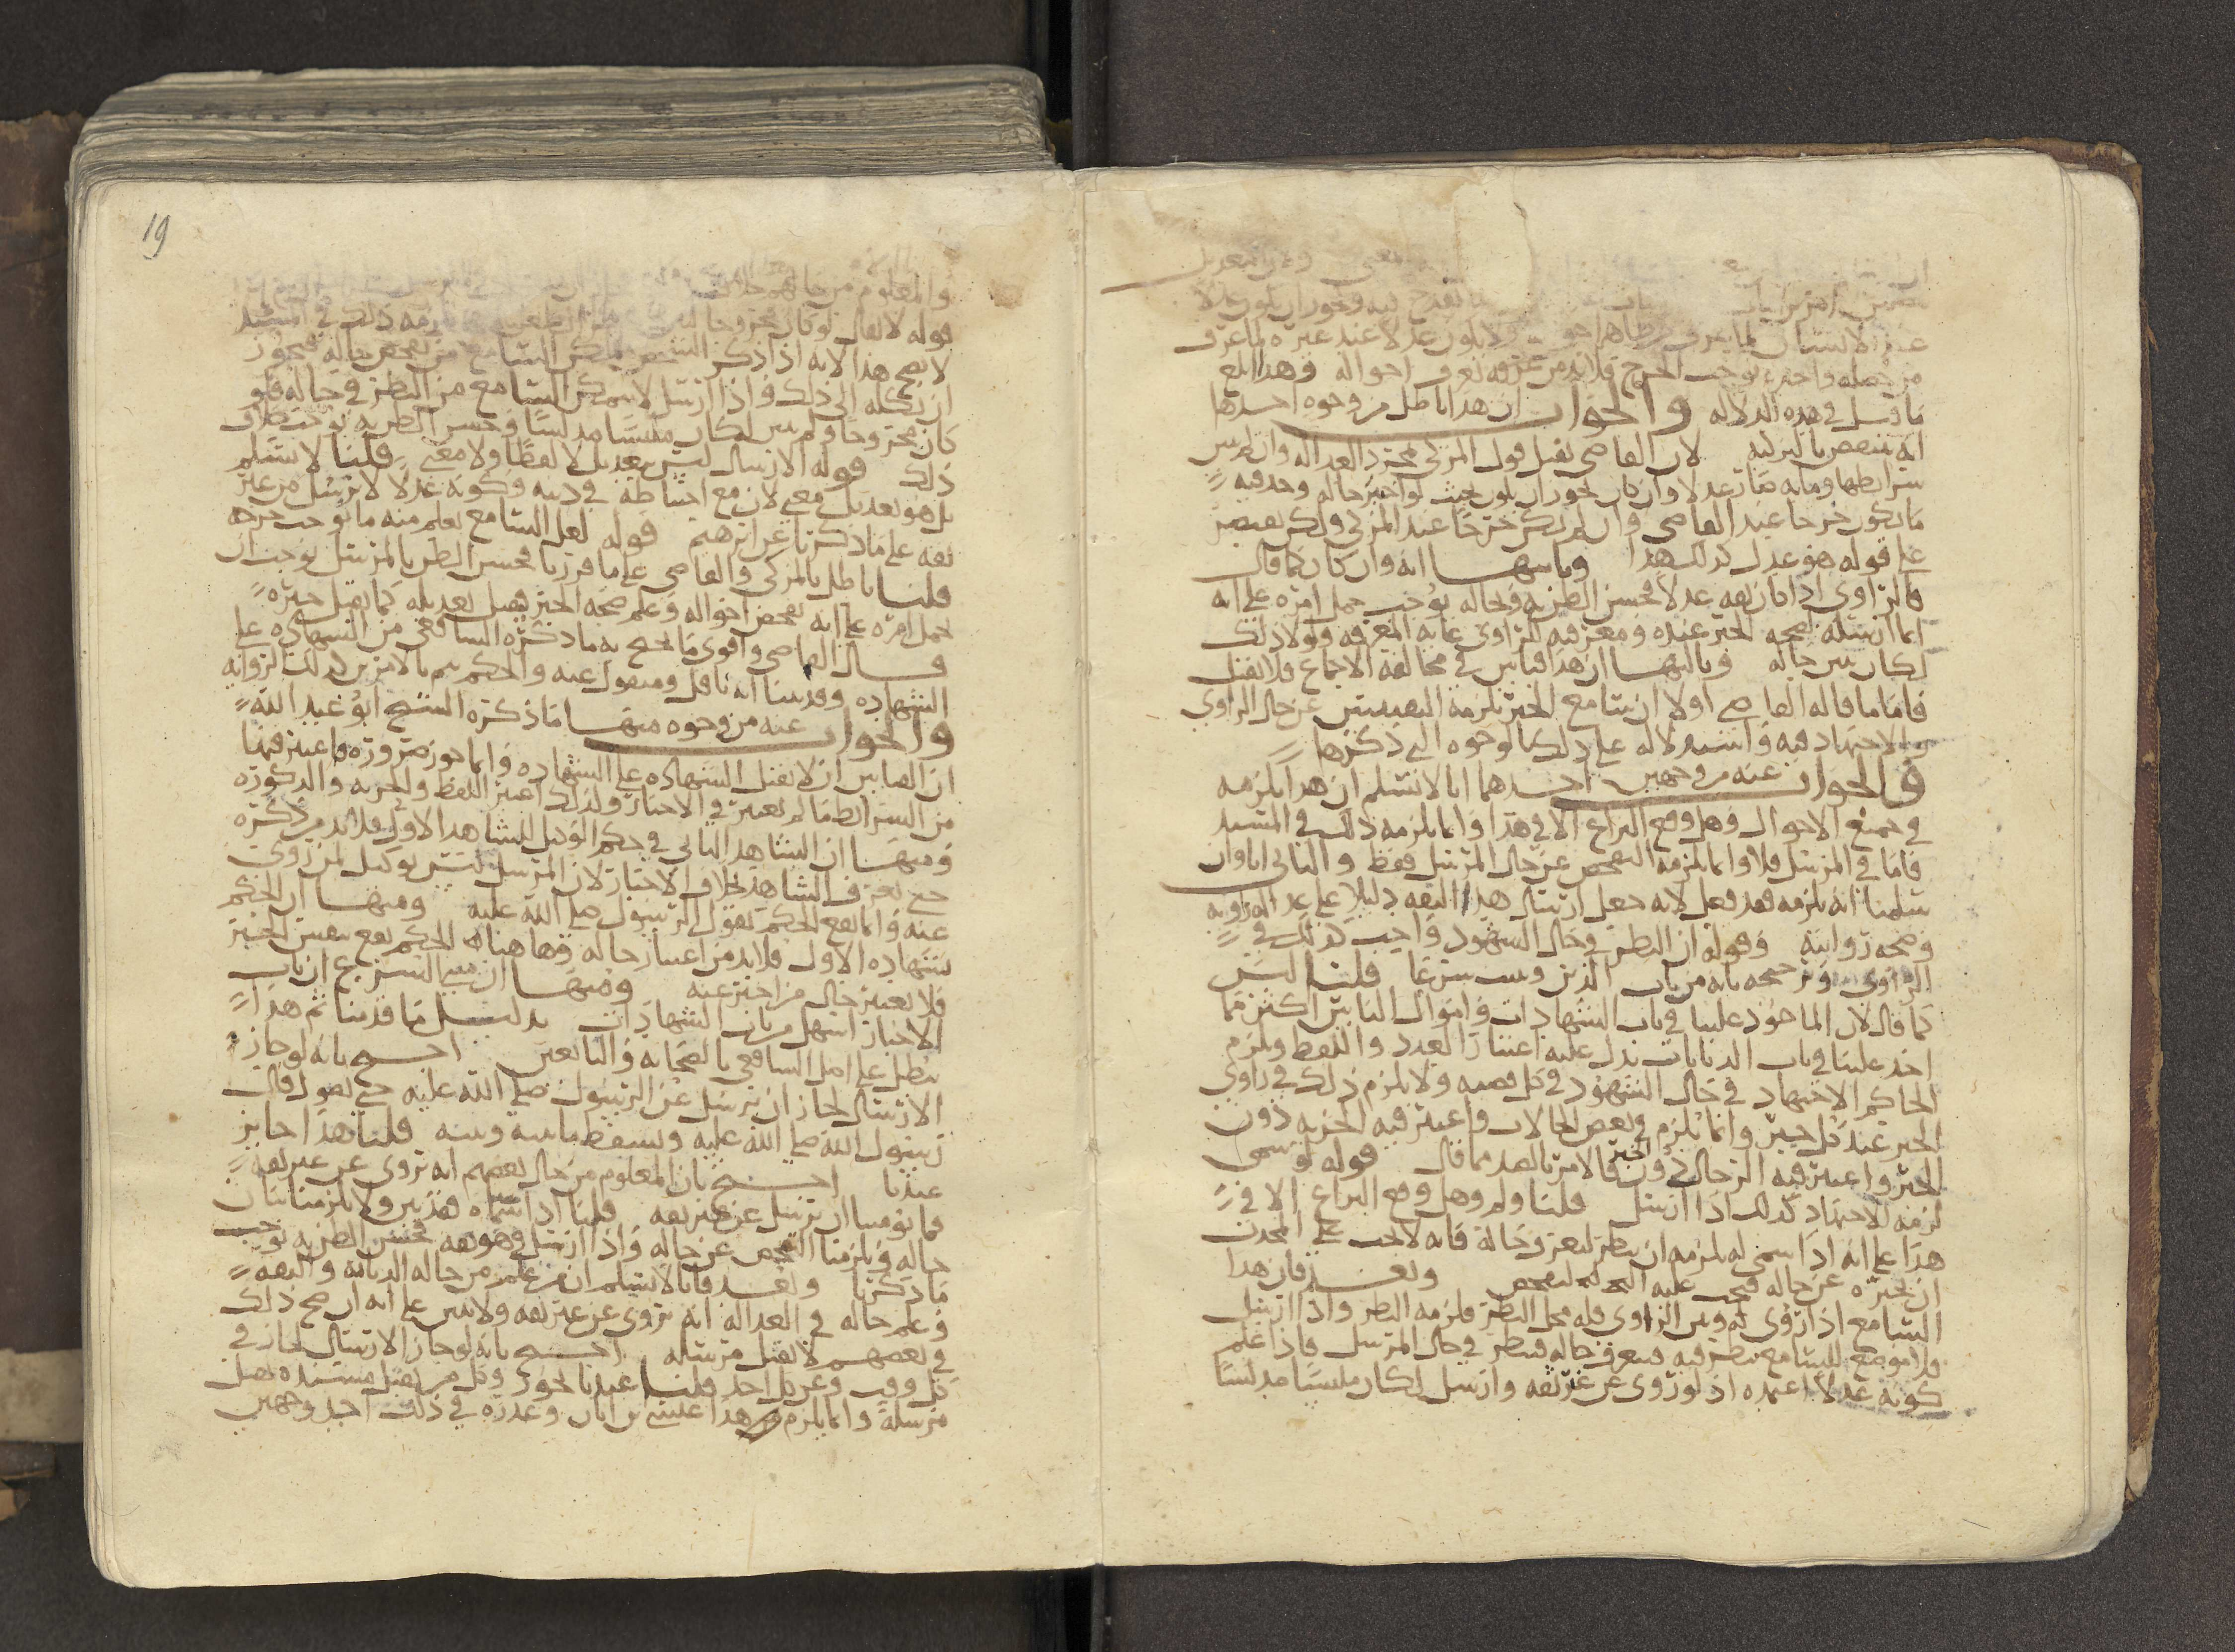 عنده لانسان لما يعرف من ظاهر احواله ولا يكون عدلا عند غيره لما عرف
من جهله واخبره يوجب الجرح فلا بد من غرفه تعرف احواله وهذا ابلغ
ما قيل في هذه الدلالة والجواب ان هذا باطل من وجوه احدها
انه ينتقض بالتزكية لان القاضي يقبل قول المزكي بمجرد العدالة وان لم يبين
شرايطها وما به صار عدلا وان كان يجوز ان يكون بحيث لو اخبر حاله وجد فيه
ما يكون جرحا عند القاضي وان لم يكن جرحا عند المزكي ولكن يقتصر
على قوله هو عدل كذلك هذا وثانيها انه وان كان كما قال
فالراوي اذا كان ثقه عدلا فحسن الظن به وبحاله يوجب حمل امره على انه
انما ارسله لصحه الخبر عنده ومعرفته للراوي غايه المعرفه ولولا ذلك
لكان يبين حاله وثالثها ان هذا قياس في مخالفه الاجماع فلا يقبل
فاما ما قاله القاضي اولا ان سامع الخبر يلزمه التفتيش عن حال الراوي
والاجتهاد فيه واستدلاله على ذلك بالوجوه التي ذكرها
فالجواب عنه من وجهين احدهما انا لا نسلم ان هذا يلزمه
في جميع الاحوال وهل وقع النزاع الا في هذا وانما يلزمه ذلك في المسند
فاما في المرسل فلا وانما يلزمه التفحص عن حال المرسل فقط والثاني انا وان
سلمنا انه يلزمه فقد فعل لانه جعل ارسال هذا الثقه دليلا على عدالة راويه
وصحه روايته وقوله ان النظر في حال الشهود واجب كذلك في
الراوي وترجيحه بانه من باب الدين وسب شرعا قلنا ليس
كما قال لان الماخوذ علينا في باب الشهادات واموال الناس اكثر مما
اخذ علينا في باب الديانات يدل عليه اعتبار العدد واللفظ ويلزم
الحاكم الاجتهاد في حال الشهود في كل قضيه ولا يلزم ذلك في راوي
الخبر عند كل خبر وانما يلزم في بعض الحالات واعتبر فيه الحريه دون
الخبر واعتبر فيه الرجال دون الخبر فالامر بالضد مما قال قوله لو سمى
لزمه الاجتهاد كذلك اذا ارسل قلنا ولم وهل وقع النزاع الا في
هذا على انه اذا سمى له يلزمه ان ينظر ليعرف حاله فانه لا يجب على المحدث
ان يخبره عن حاله فيجب عليه التفحص وبعد فان هذا
السامع اذا روى له وبين الراوي فله محل النظر فلزمه النظر واذا ارسل
فلا موضع للسامع ينظر فيه فيعرف حاله فينظر في حال المرسل فاذا علم
كونه عدلا اعتمده اذ لو روى عن غير ثقه وارسل لكان ملبسا مدلسا
19
والمعلوم من حالهم خلاف
قوله لا يقال لو كان مجروحا
لا يصح هذا لانه اذا ذكر الشخص يمكن السامع من تفحص حاله فيجوز
ان يكله الى ذلك واذا ارسل لا يمكن السامع من النظر في حاله فلو
كان مجروحا ولم يبين لكان ملبسا مدلسا وحسن الظن به يوجب خلاف
ذلك قوله الارسال ليس بتعديل لا لفظا ولا معنى قلنا لا نسلم
بل هو تعديل معنى لان مع احتياطه في دينه وكونه عدلا لا يرسل من غير
ثقه على ما ذكرنا عن ابراهيم قوله لعل السامع يعلم منه ما يوجب جرحه
قلنا باطل بالمزكي والقاضي على ما قررنا فحسن الظن بالمرسل يوجب ان
يحمل امره على انه تفحص احواله وعلم صحه الخبر فيقبل تعديله كما يقبل خبره
قال القاضي واقوى ما يحتج به ما ذكره الشافعي من الشهاده على
الشهاده وقد بينا انه ناقل ومنقول عنه والحكم يتم بالامرين كذلك الروايه
والجواب عنه من وجوه منها ما ذكره الشيخ ابو عبد الله
ان القياس ان لا تقبل الشهاده على الشهاده وانما جوز ضروره فاعتبر فيها
من الشرايط ما لم يعتبر في الاخبار ولذلك اعتبر اللفظ والحريه والذكوره
ومنها ان الشاهد الثاني في حكم الوكيل للشاهد الاول فلا بد من ذكره
حتى يعرف الشاهد بخلاف الاخبار لان المرسل ليس بوكيل لمن روى
عنه وانما يقع الحكم بقول الرسول صلى الله عليه ومنها ان الحكم
بشهاده الاول فلا بد من اعتبار حاله وها هناك الحكم يقع بنفس الخبر
فلا يعتبر حال من اخبر عنه ومنها ان مبنى الشرع ان باب
الاخبار اسهل من باب الشهادات بدليل ما قدمنا ثم هذا
يبطل على اصل الشافعي بالصحابه والتابعين احتج بانه لو جاز
الارسال لجاز ان يرسل عن الرسول صلى الله عليه حتى يقول قال
رسول الله صلى الله عليه ويسقط ما بينه وبينه قلنا هذا جايز
عندنا احتج بان المعلوم من حال بعضهم انه يروي عن غير ثقه
فما يومننا ان يرسل عن غير ثقه قلنا اذا سماه فقد بين ولا يلزمنا بيان
حاله ويلزمنا التفحص عن حاله واذا ارسل وهو ثقه فحسن الظن به يوجب
ما ذكرنا وبعد فانا لا نسلم ان من علم من حاله الديانه والثقه
وعلم حاله في العداله انه يروي عن غير ثقه ولا يبين على انه ان صح ذلك
في بعضهم لا يقبل مرسله احتج بانه لو جاز الارسال لجاز في
كل وقت وعن كل احد قلنا عندنا يجوز وكل من يقبل مسنده يقبل
مرسله وانما يلزم هذا عيسى بن ابان وعذره في ذلك احد وجهين